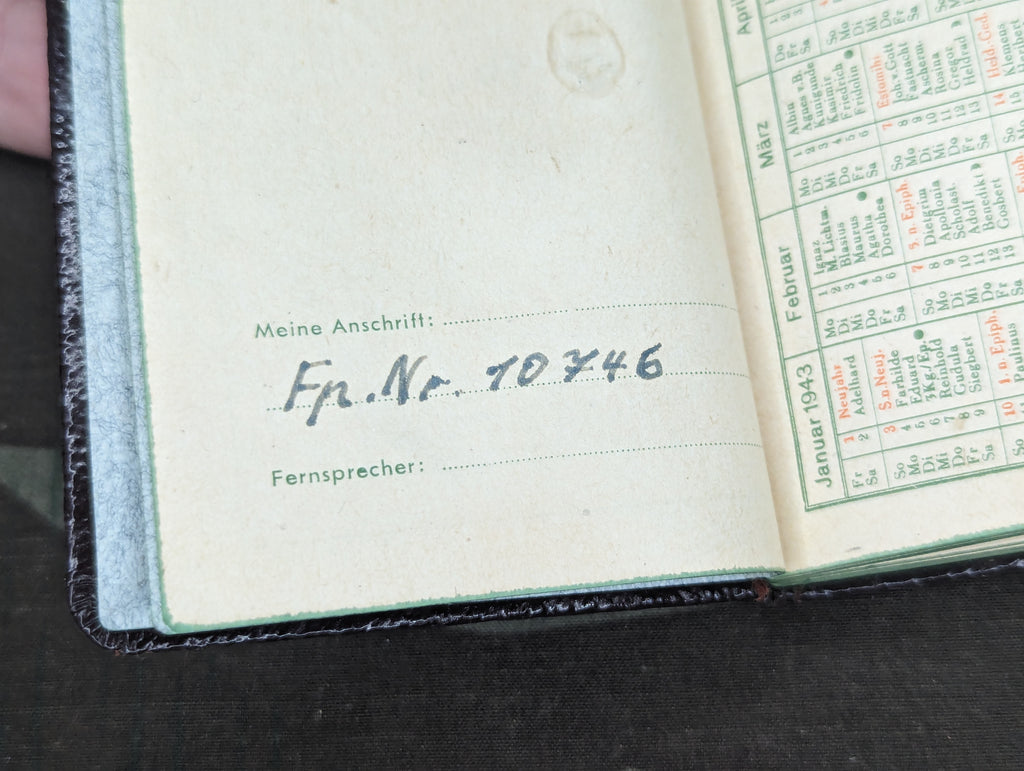 Meine Anschrift:
Fp. Nr. 10746
Fernsprecher:
Januar 1943
Fr 1 Neujahr
Sa 2 Adelhard
So 3 S.n.Neuj.
Mo 4 Farhilde
Di 5 Eduard
Mi 6
Do 7 Reinhold
Fr 8 Gudula
Sa 9 Siegbert
So 10 1. n. Epiph.
Paulinus
Februar
Mo 1 Ignaz
Di 2 M. Lichtm.
Mi 3 Blasius
Do 4 Maurus
Fr 5 Agatha
Sa 6 Dorothea
So 7 5. n. Epiph.
Mo 8 Diegrim
Di 9 Apollonia
Mi 10 Scholast.
Do 11 Adolf
Fr 12 Benedikt
Sa 13 Gosbert
So
März
Mo 1 Albin
Di 2 Agnes v.B.
Mi 3 Kunigunde
Do 4 Kasimir
Fr 5 Friedrich
Sa 6 Fridolin
So 7 Estomihi
Mo 8 Joh. v. Gott
Di 9 Fastnacht
Mi 10 Ascherm.
Do 11 Rosina
Fr 12 Gregor
Sa 13 Heldrad
So 14 Held.-Ged.
Mo 15 Klemens
April
Do 1
Fr 2
Sa 3
So 4
Mo
Di
Mi
Do
Fr
Sa
So